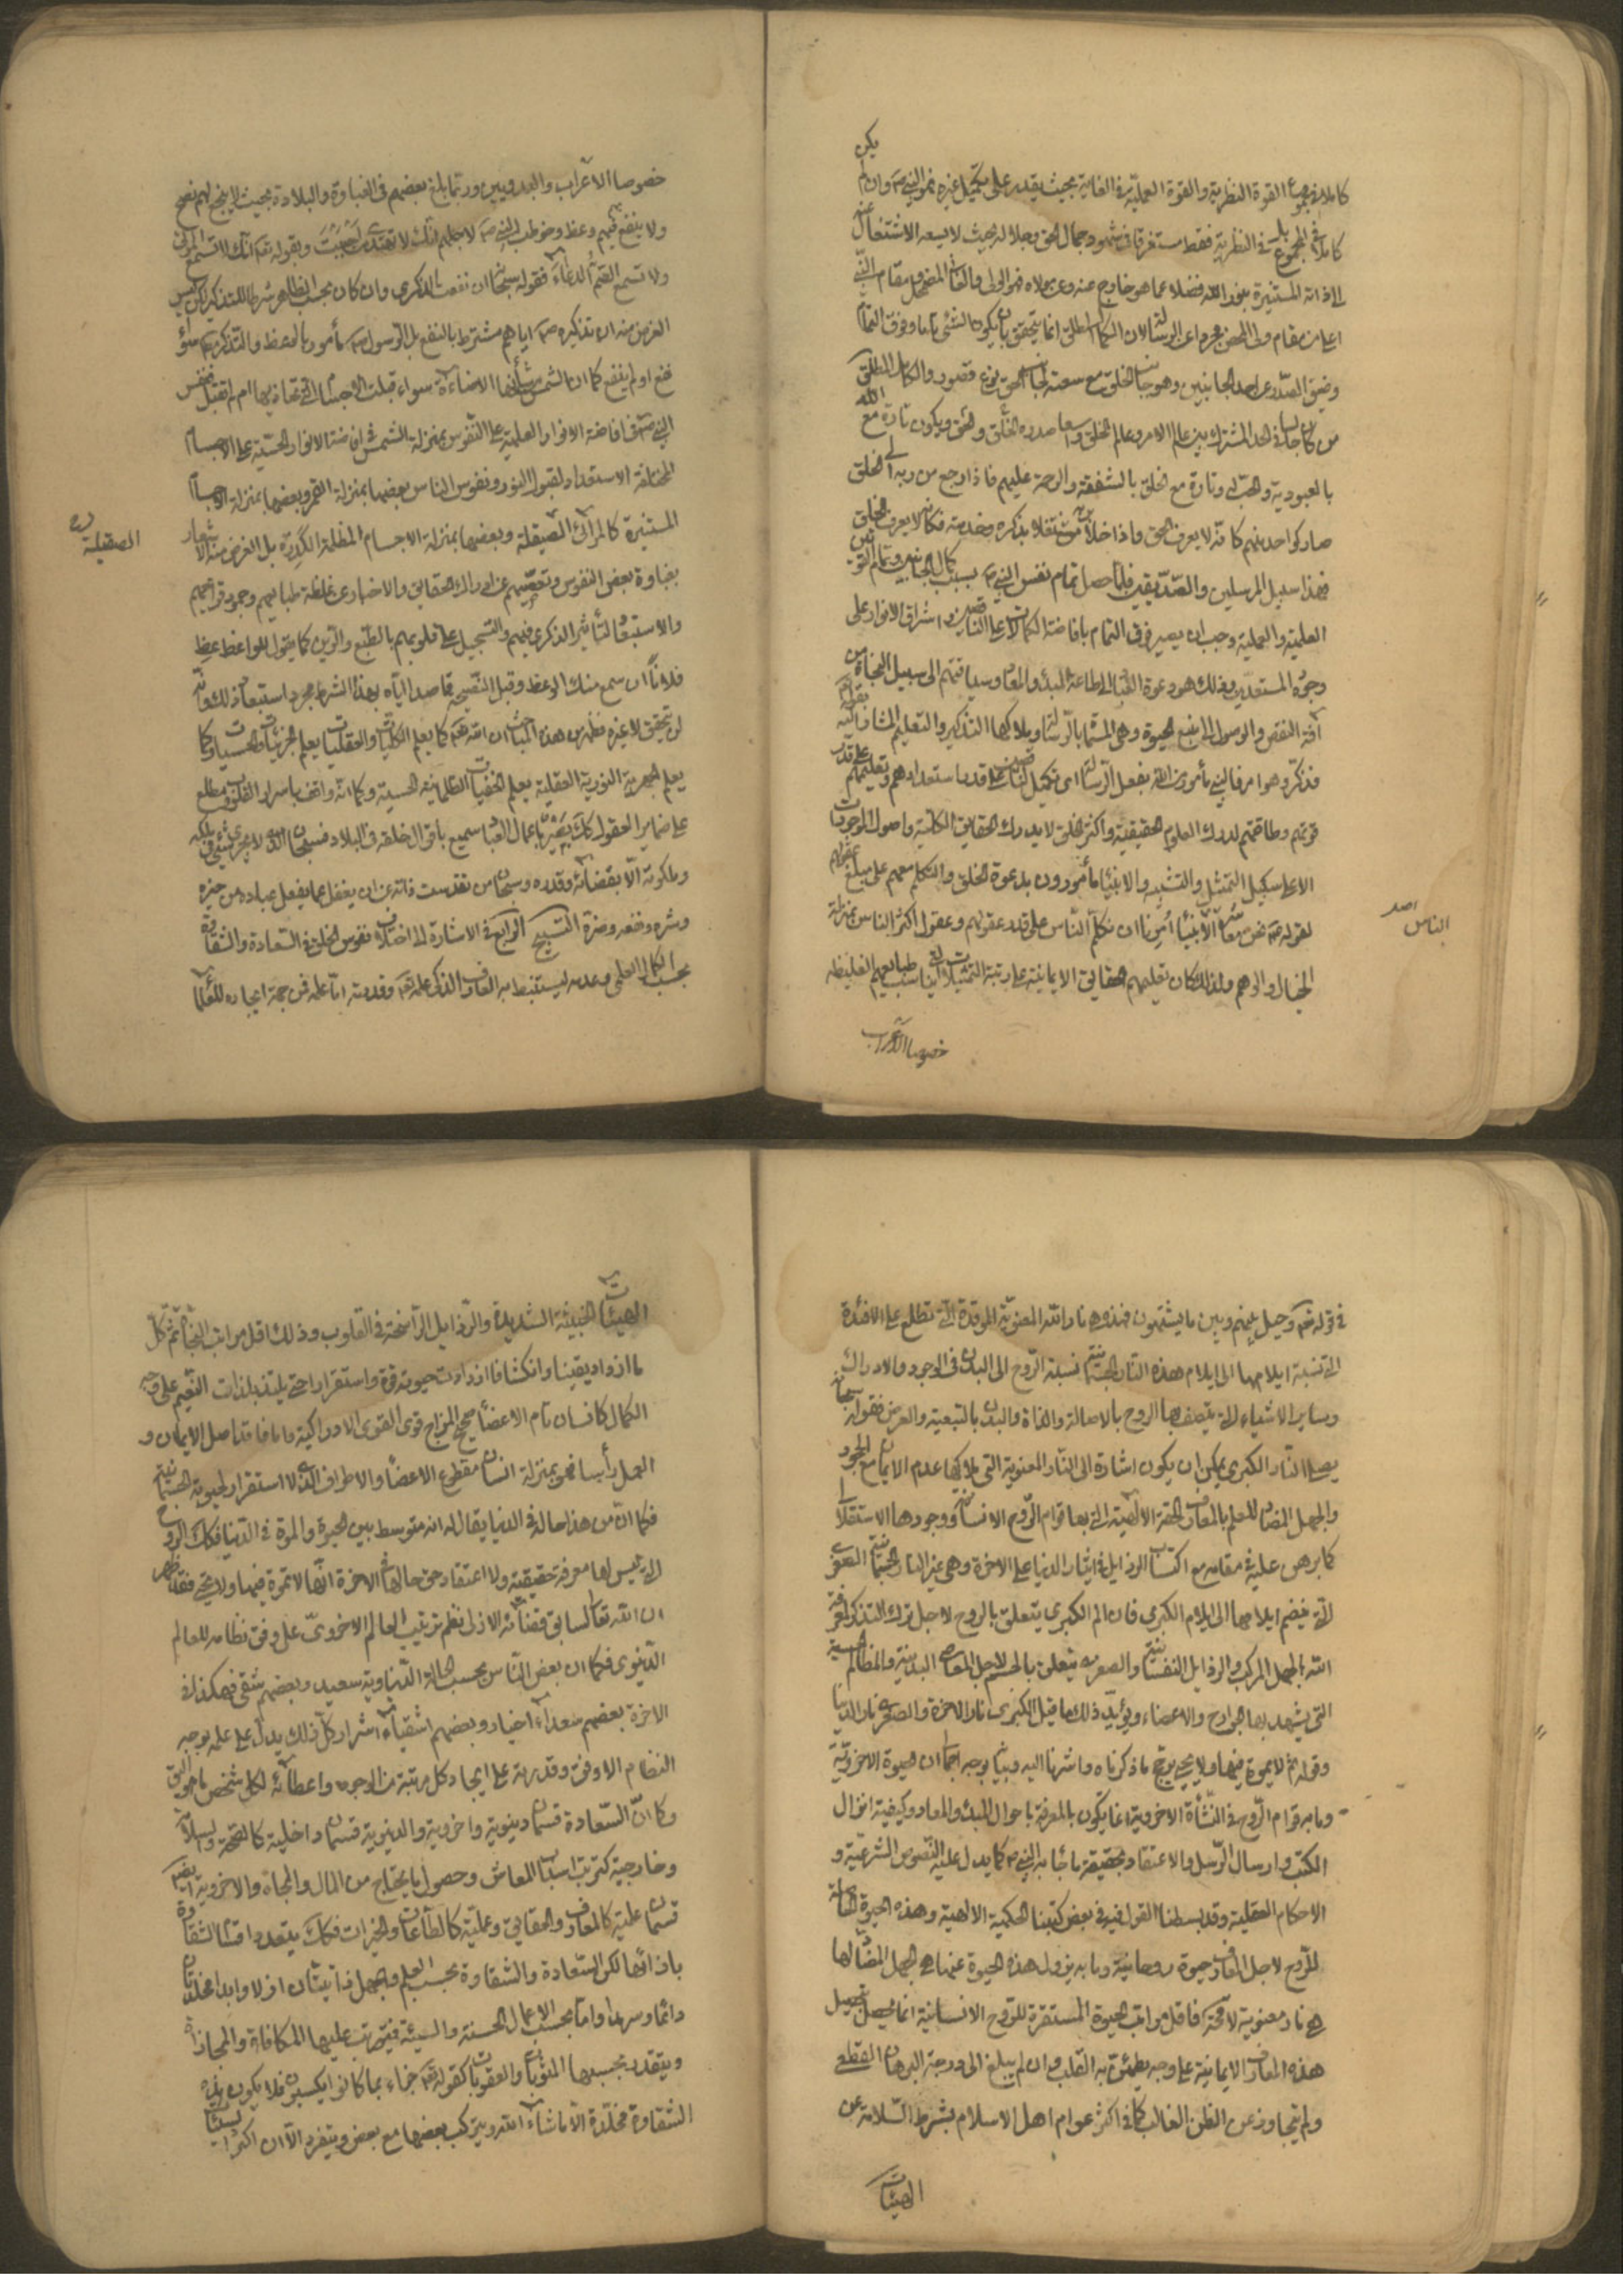 يكن
كاملا في مجموع القوة النظرية والقوة العملية في الغاية بحيث يقدر على تكميل غيره فهو النبي ص وان لم
كاملا في المجموع بل في النظرية فقط مستغرقا في شهود جمال الحق وجلاله بحيث لا يسعه الاشتغال عنه
الى ذاته المستنيرة بنور الله فضلا عما هو خارج عنه وعن مولاه فهو الولى والفاني المضمحل ومقام النبي
اعلى من مقام ولى المحض مجردا عن الرسالة لان الكمال المطلق انما يتحقق بان يكون الشئ تاما وفوق التمام
وضيق الصدر عن احد الجانبين وهو جانب الخلق مع سعته لجانب الحق نوع قصور والكامل المطلق
من كان جالسا في الحد المشترك بين عالم الامر وعالم الخلق واسعا صدره للخلق والحق ويكون تارة مع الله
بالعبودية والحب له وتارة مع الخلق بالشفقة والرحمة عليهم فاذا رجع من ربه الى الخلق
صار كواحد منهم كانه لا يعرف الحق واذا خلا بربه مشتغلا بذكره وخدمته فكانه لا يعرف الخلق
فهذا سبيل المرسلين والصديقين فلما حصل تمام نفس النبي ص بسبب كمال الجانبين وتمام القوتين
العلمية والعملية وجب ان يصير فوق التمام بافاضة الكمالات على الناقصين واشراق الانوار على
وجوه المستعدين وذلك هو دعوة العباد الى طاعة المبدء والمعاد وسياقتهم الى سبيل النجاة من
آفة النقص والوصول الى منبع الحيوة وهى المسماة بالرسالة وملاكها التذكير والتعليم المشار اليه بقوله تعالى
فذكر وهو امر فالنبي مأمور من الله بفعل الرسالة اى تكميل الناقصين على قدر استعدادهم وتعليمهم على قدر
قوتهم وطاقتهم لدرك العلوم الحقيقية واكثر الخلق لا يدرك الحقايق الكلية واصول الموجودات
الا على سبيل التمثيل والتشبيه والانبياء مأمورون بدعوة الخلق والتكلم معهم على مبلغ عقولهم
لقوله ص نحن معاشر الانبياء امرنا ان نكلم الناس على قدر عقولهم وعقول اكثر الناس بمنزلة
الناس
الخيال والوهم ولذلك كان تعليمهم الحقايق الايمانية على رتبة التمثيلات ليناسب طبايعهم الغليظة
خصوصا الاعراب
خصوصا الاعراب والبدويين وربما بلغ بعضهم في الغباوة والبلادة بحيث لا ينجع لهم نصح
ولا ينفع فيهم وعظ وخوطب النبي ص لاجلهم انك لا تهتدى من احببت وبقوله تع انك لا تسمع الموتى
ولا تسمع الصم الدعاء فقوله سبحانه ان نفعت الذكرى وان كان بحسب الظاهر شرطا للتذكير لكن ليس
الغرض منه ان تذكيره ص اياهم مشترط بالنفع بل الرسول ص مأمور بالوعظ والتذكير سواء
نفع او لم ينفع كما ان الشمس شأنها الاضاءة سواء قبلت الاجسام التي تحاذيها ام لم تقبل فنفس
النبي ص في افاضة الانوار العلمية على النفوس بمنزلة الشمس في افاضة الانوار الحسية على الاجسام
المختلفة الاستعداد لقبول النور ونفوس الناس بعضها بمنزلة القمر وبعضها بمنزلة الاجسام
المستنيرة كالمرائى الصيقلة وبعضها بمنزلة الاجسام المظلمة الكدرة بل الغرض منه الاشعار
الصقيلة
بغباوة بعض النفوس وتعصيهم عن ادراك الحقايق والاخبار عن غلظة طبايعهم وجمود قرايحهم
والاستبعاد لتأثير الذكرى فيهم والتسجيل على قلوبهم بالطبع والرين كما يقول للواعظ عظ
فلانا ان سمع منك الوعظ وقبل النصيحة قاصدا اياه بهذا الشرط مجرد استبعاد ذلك وانه
لن يتحقق لا غيره فظهر من هذه المباحث ان الله تع كما يعلم الكليات والعقليات يعلم الجزئيات والحسيات وكما
يعلم الجهرية النورية العقلية يعلم الخفيات الظلمانية الحسية وكما انه واقف باسرار القلوب مطلع
على ضماير العقول كذلك بصير باعمال العباد سميع باقوال خلقه في البلاد فسبحان الذى لا يجرى شئ في ملكه
وملكوته الا بقضائه وقدره وسبحان من تقدست ذاته عن ان يغفل عما يفعل عباده من خيره
وشره ونفعه وضره التسبيح الرابع في الاشارة الى اختلاف نفوس الخلق في السعادة والشقاوة
بحسب الكمال العلمي وعدمه ليستنبط به العارف الذكى علمه تع وقدرته اما علمه فمن جهة ايجاده للعالم
في قوله تع وحيل بينهم وبين ما يشتهون فهذه هي نار الله المعنوية الموقدة التي تطلع على الافئدة
التي نسبة ايلامها الى ايلام هذه النار الجسمانية نسبة الروح الى البدن في الوجود والادراك
وساير الاشياء التي يتصف بها الروح بالاصالة والذات والبدن بالتبعية والعرض فقوله سبحانه
يصلى النار الكبرى يمكن ان يكون اشارة الى النار المعنوية التي ملاكها عدم الايمان مع الجحود
والجهل المضاد للعلم بالمعارف الحقة الالهية التي بها قوام الروح الانسانية ووجودها الاستقلالى
كما برهن عليه في مقامه مع اكتساب الرذايل في ايثار الدنيا على الاخرة وهى غير النار الجسمانية الصغرى
التي ينضم ايلامها الى ايلام الكبرى فان الم الكبرى يتعلق بالروح لاجل ترك التذكر لمعرفة
الله والجهل المركب والرذايل النفسانية والصغرى يتعلق بالجسم لاجل المعاصى البدنية والمظالم الحسية
التي يشهد بها الجوارح والاعضاء ويؤيد ذلك ما قيل الكبرى نار الاخرة والصغرى نار الدنيا
وقوله ثم لا يموت فيها ولا يحيى يوضح ما ذكرناه واشرنا اليه وبيانه بوجه اجمالى ان الحيوة الاخروية
وما به قوام الروح في النشأة الاخروية انما يكون بالمعرفة باحوال المبدء والمعاد وكيفية انزال
الكتب وارسال الرسل والاعتقاد بحقيقة ما جاء به النبي ص كما يدل عليه النصوص الشرعية و
الاحكام العقلية وقد بسطنا القول فيه في بعض كتبنا الحكمية الالهية وهذه الحيوة الحاصلة
للروح لاجل المعارف حيوة روحانية وما به يزول هذه الحيوة عنها هي الجهل المضاد لها
هي نار معنوية لافحة فاقل مراتب الحيوة المستقرة للروح الانسانية انما يحصل بتحصيل
هذه المعارف الايمانية على وجه يطمئن به القلب وان لم يبلغ الى درجة البرهان القطعى
ولم يتجاوز عن الظن الغالب كما في اكثر عوام اهل الاسلام بشرط السلامة عن
الهيئات
الهيئات الخبيثة الشديدة والرذايل الراسخة في القلوب وذلك اقل مراتب النجاة ثم كل
ما ازداد يقينا وانكشافا ازدادت حيوته قوة واستقرارا حتى يلتذ بلذات النعيم على وجه
الكمال كانسان تام الاعضاء صحيح المزاج قوى القوى الادراكية واما فاقد اصل الايمان و
العمل رأسا فهو بمنزلة انسان مقطوع الاعضاء والاطراف الذى لا استقرار لحيوته الجسمانية
فكما ان من هذا حاله في الدنيا يقال له انه متوسط بين الحيوة والموت في الدنيا فكذلك الروح
التي ليس لها معرفة حقيقية ولا اعتقاد حق حالها في الاخرة انها لا تموت فيها ولا تحيى فقد ظهر
ان الله تعالى لسابق قضائه الازلى نظم ترتيب العالم الاخروى على وفق نظامه للعالم
الدنيوى فكما ان بعض الناس بحسب الحالة الدنياوية سعيد وبعضهم شقى فهكذا في
الاخرة بعضهم سعداء اخيار وبعضهم اشقياء اشرار كل ذلك يدل على علمه بوجه
النظام الاوفق وقدرته على ايجاد كل مرتبة من الوجود واعطائه لكل شخص ما هو اليق
وكما ان السعادة قسمان دنيوية واخروية والدنيوية قسمان داخلية كالصحة والسلامة
وخارجية كترتب اسباب المعاش وحصول ما يحتاج من المال والجاه والاخروية ايضا
قسمان علمية كالمعارف والحقايق وعملية كالطاعات والخيرات فكذلك يتعدد اقسام الشقاوة
بازائها لكن السعادة والشقاوة بحسب العلم والجهل ذاتيتان ازلا وابدا مخلدتان
دائما وسرمدا واما بحسب الاعمال الحسنة والسيئة فيترتب عليها المكافاة والمجازاة
ويتقدر بحسبها المثوبات والعقوبات كقوله تع جزاء بما كانوا يكسبون فلا يكون
الشقاوة مخلدة الا ما شاء الله ويتركب بعضها مع بعض وينفرد الا ان اكثر